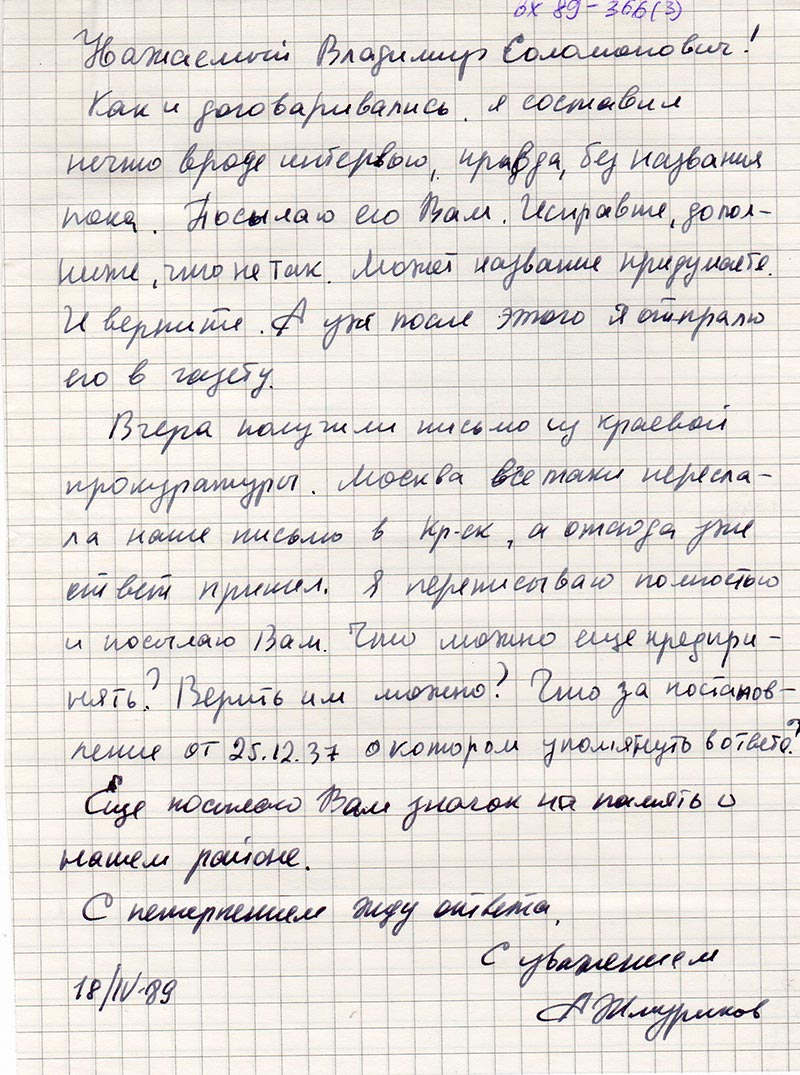 вх 89-366(3)
Уважаемый Владимир Соломонович!
Как и договаривались, я составил
нечто вроде интервью, правда, без названия
пока. Посылаю его Вам. Исправьте, допол-
ните, что не так. Может название придумаете.
И верните. А уже после этого я отпралю
его в газету.
Вчера получили письмо из краевой
прокуратуры. Москва все таки пересла-
ла наше письмо в Кр-ск, а отсюда уже
ответ пришел. Я переписываю полностью
и посылаю Вам. Что можно еще предпри-
нять? Верить им можно? Что за постанов-
ление от 25.12.37 о котором упомянуть в ответе?
Еще посылаю Вам значок на память о
нашем районе.
С нетерпением жду ответа.
С уважением
18/IV-89